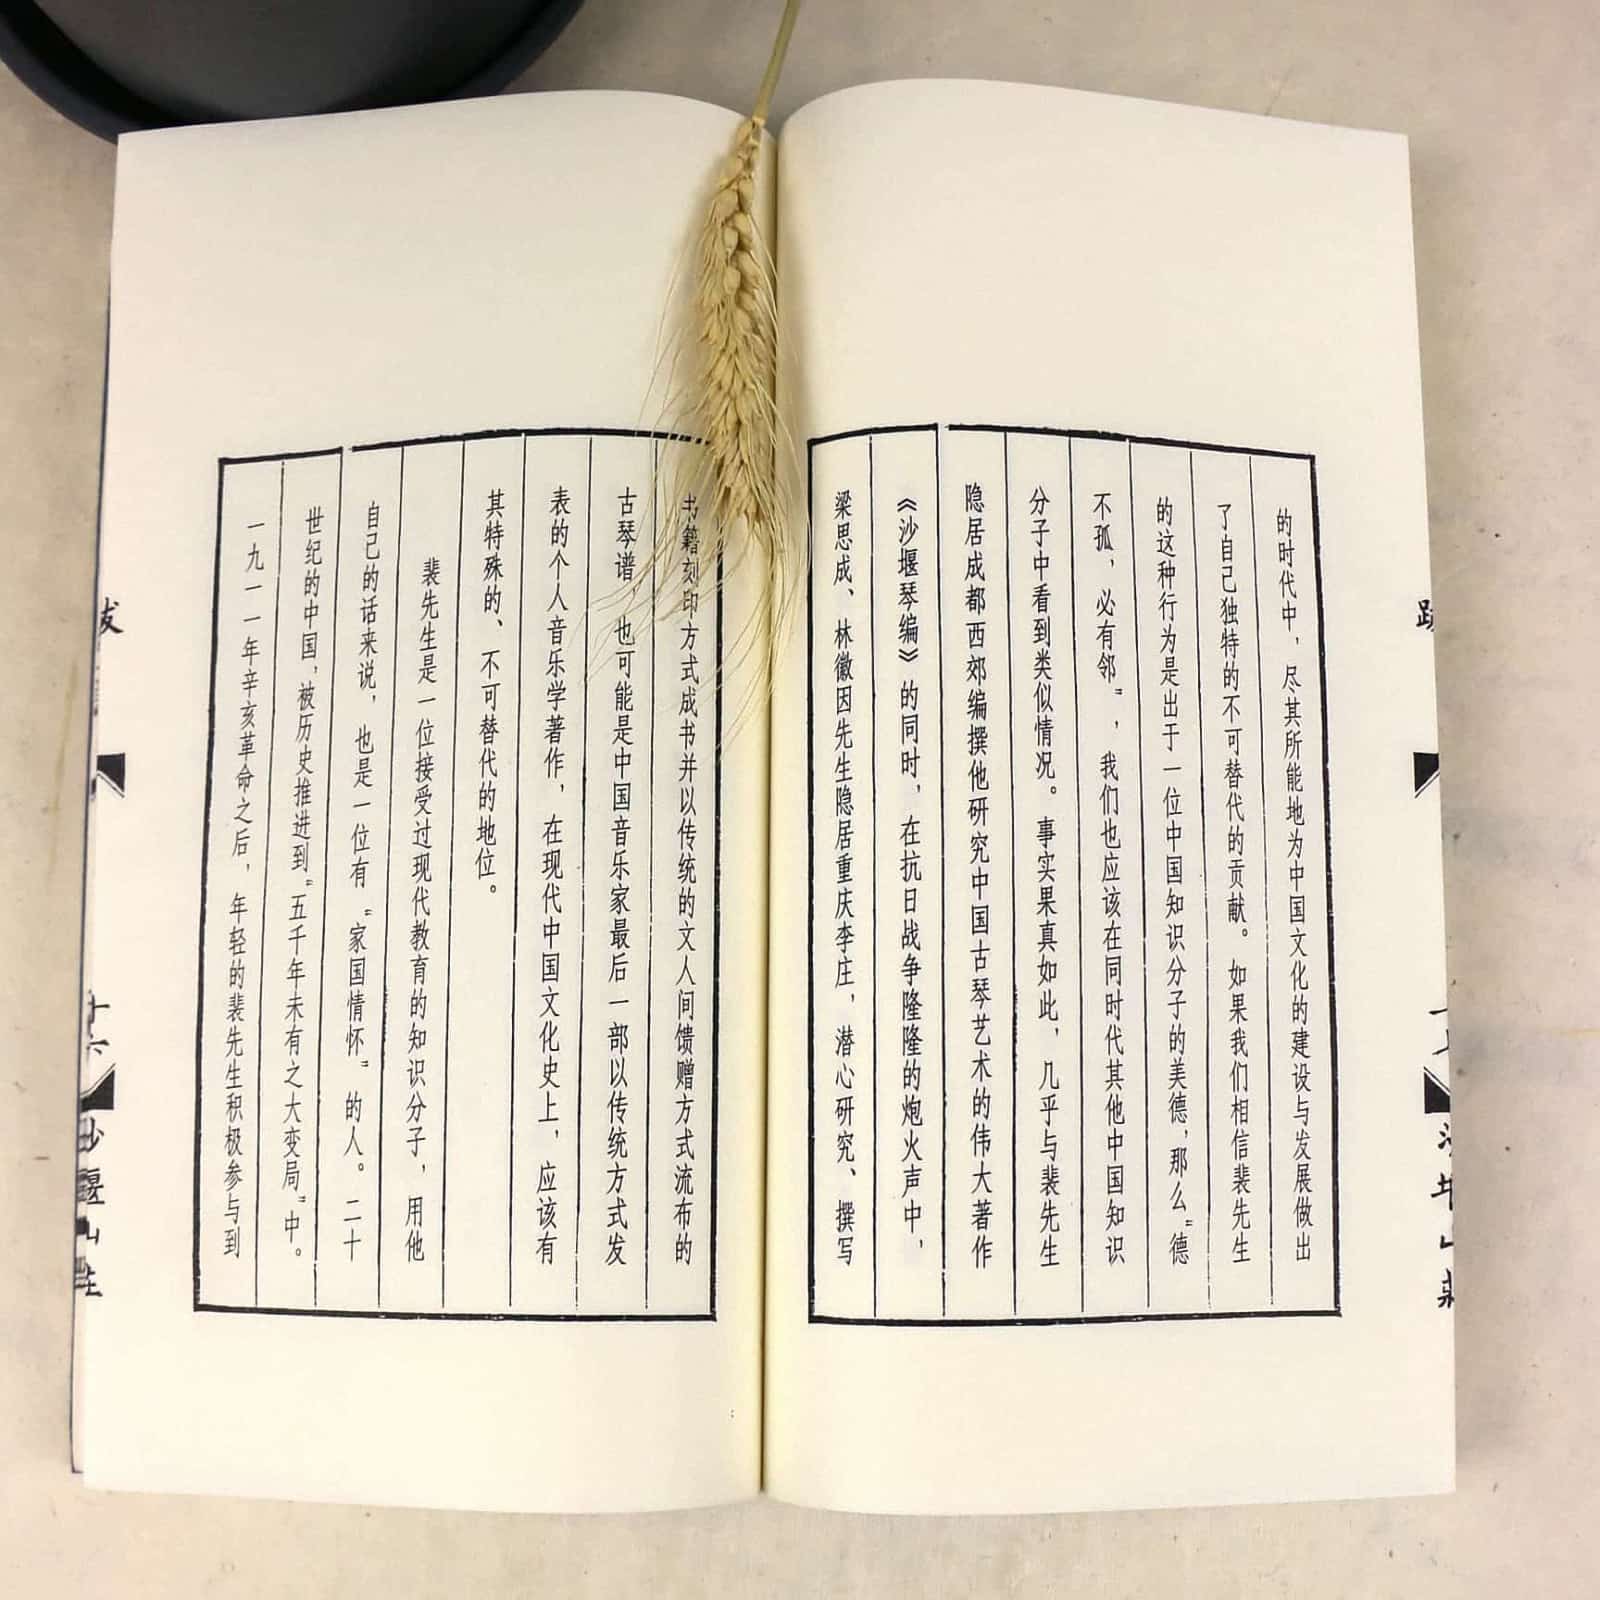 的时代中，尽其所能地为中国文化的建设与发展做出
了自己独特的不可替代的贡献。如果我们相信裴先生
的这种行为是出于一位中国知识分子的美德，那么“德
不孤，必有邻”，我们也应该在同时代其他中国知识
分子中看到类似情况。事实果真如此，几乎与裴先生
隐居成都西郊编撰他研究中国古琴艺术的伟大著作
《沙堰琴编》的同时，在抗日战争隆隆的炮火声中，
梁思成、林徽因先生隐居重庆李庄，潜心研究、撰写
书籍刻印方式成书并以传统的文人间馈赠方式流布的
古琴谱，也可能是中国音乐家最后一部以传统方式发
表的个人音乐学著作，在现代中国文化史上，应该有
其特殊的、不可替代的地位。
裴先生是一位接受过现代教育的知识分子，用他
自己的话来说，也是一位有“家国情怀”的人。二十
世纪的中国，被历史推进到“五千年未有之大变局”中。
一九一一年辛亥革命之后，年轻的裴先生积极参与到